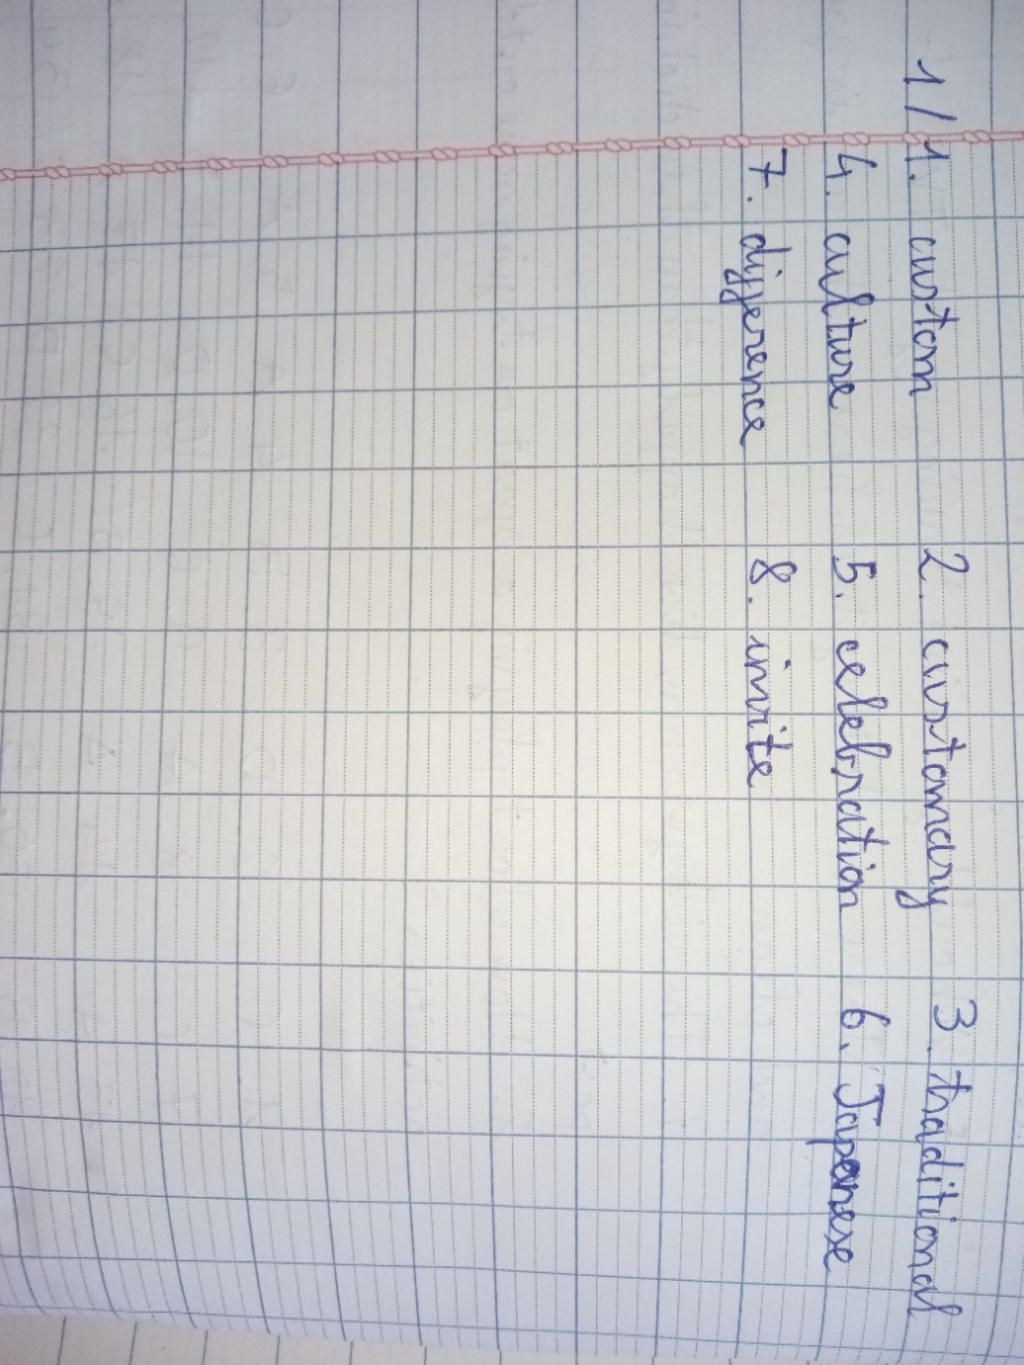 1/ 1. custom 2. customary 3. traditional
4. culture 5. celebration 6. Japanese
7. difference 8. invite